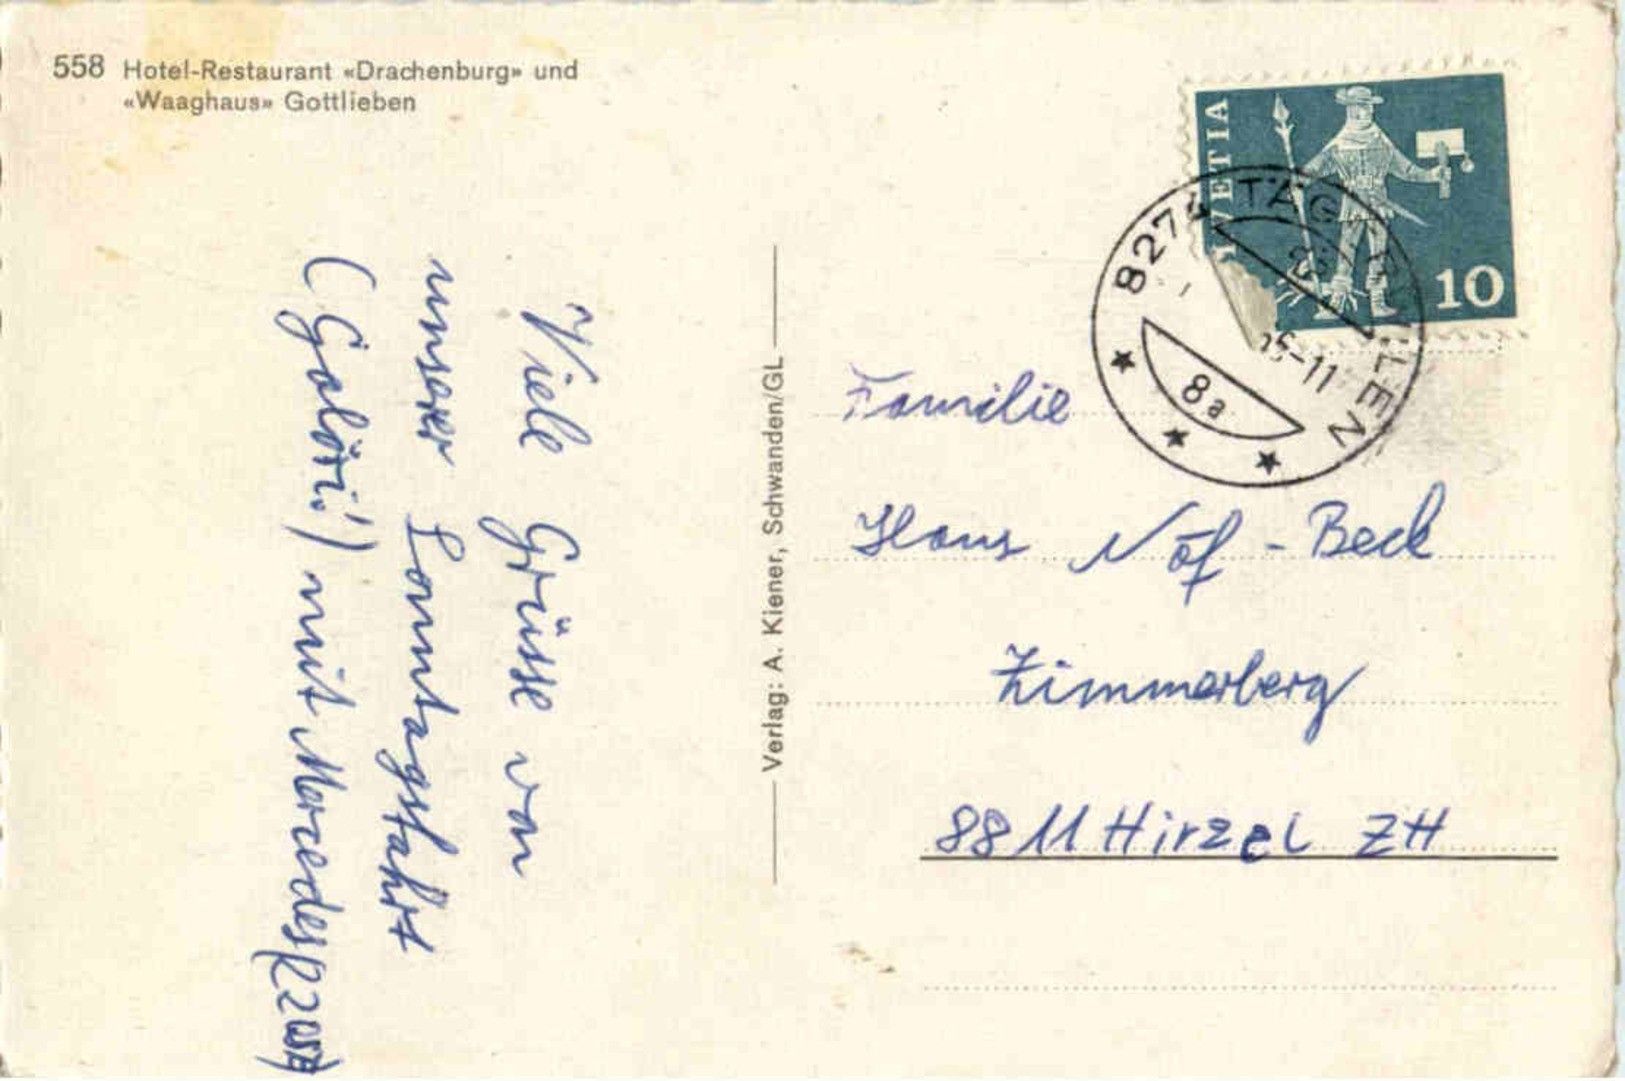 558 Hotel-Restaurant «Drachenburg» und
«Waaghaus» Gottlieben
Viele Grüsse von
unserer Sonntagsfahrt
mit Mercedes
Verlag: A. Kiener, Schwanden/GL
HELVETIA
10
8274 TÄGERWILEN
-11
8a
Familie
Hans Näf-Beck
Zimmerberg
8811 Hirzel ZH